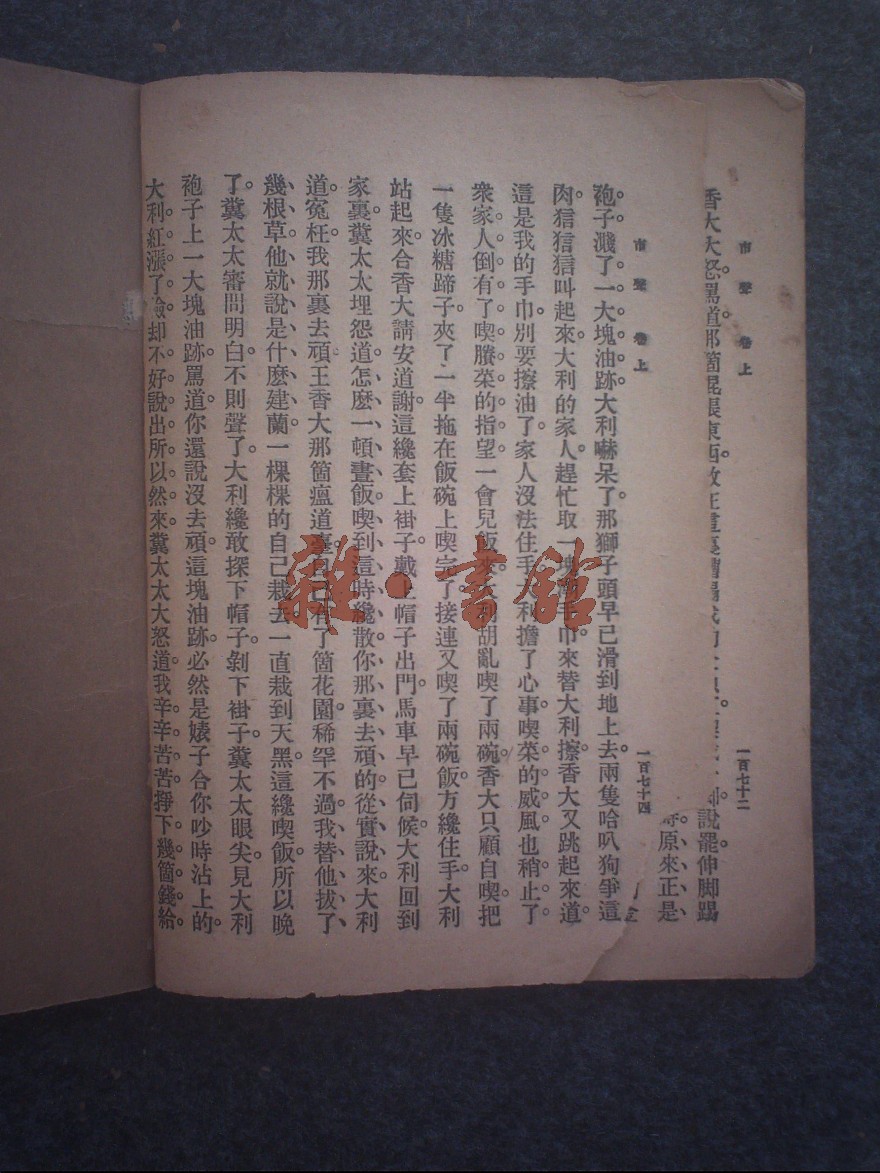 市聲 卷上
一百七十二
香大大怒罵道那箇混賬東西
說罷伸脚踢
原來正是
市聲 卷上
一百七十四
袍子濺了一大塊油跡大利嚇呆了。那獅子頭早已滑到地上去。兩隻哈叭狗爭這
肉狺狺狺叫起來。大利的家人趕忙取一塊 手巾來替大利擦。香大又跳起來道。
這是我的手巾別要擦油了。家人沒法住手。大利擔了心事。喫菜的威風也稍止了。
衆家人倒有了喫賸菜的指望。一會兒飯來。大利胡亂喫了兩碗。香大只顧自喫。把
一隻冰糖蹄子夾了一半拖在飯碗上喫完了。接連又喫了兩碗飯。方纔住手。大利
站起來合香大請安道謝。這纔套上褂子。戴上帽子出門。馬車早已伺候。大利回到
家裏。糞太太埋怨道。怎麽一頓晝飯喫到這時纔散。你那裏去頑的。從實說來。大利
道。冤枉。我那裏去頑。王香大那箇瘟道臺。自己有了箇花園。稀罕不過。我替他拔了
幾根草。他就說是什麽建蘭。一棵棵的自己栽去。一直栽到天黑。這纔喫飯。所以晚
了。糞太太審問明白。不則聲了。大利纔敢探下帽子。剝下褂子。糞太太眼尖。見大利
袍子上一大塊油跡。罵道。你還說沒去頑。這塊油跡。必然是婊子合你吵時沾上的。
大利紅漲了臉。却不好說出所以然來。糞太太大怒道。我辛辛苦苦掙下幾箇錢。給
雜·書館